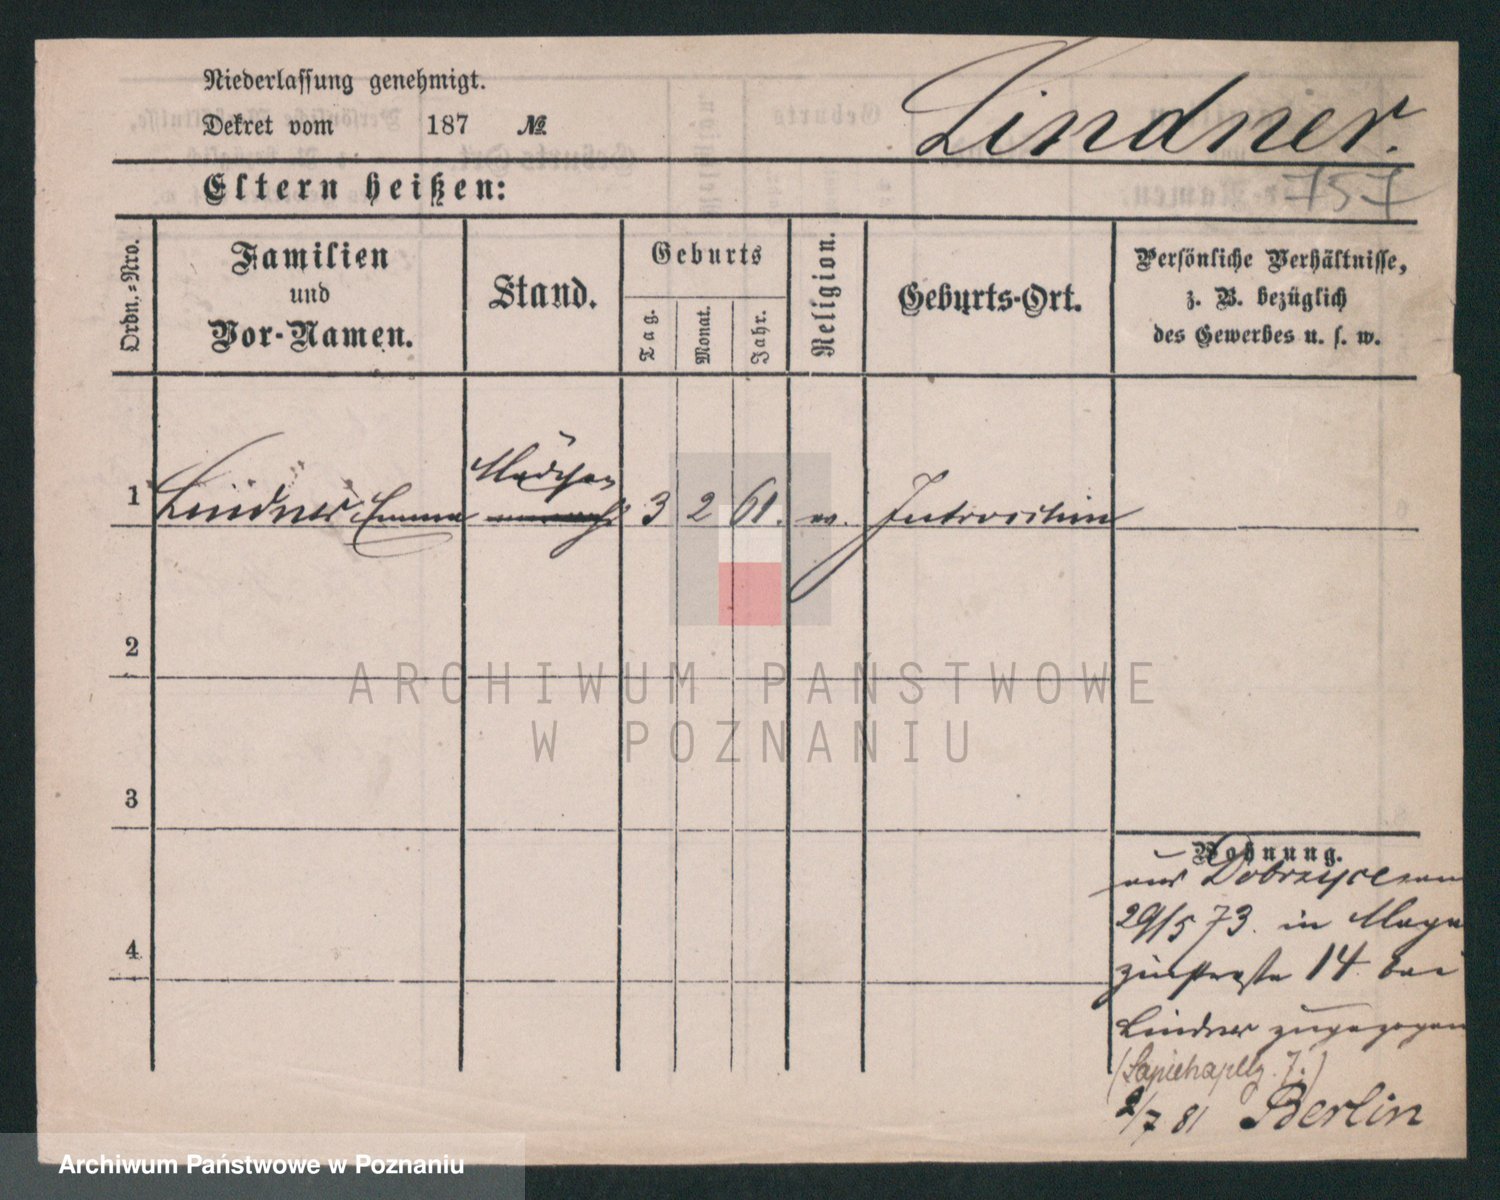 Niederlassung genehmigt.
Dekret vom 187 №
Lindner.
757
Eltern heißen:
Ordn.-Nro.
Familien
und
Vor-Namen.
Stand.
Geburts
Tag.
Monat.
Jahr.
Religion.
Geburts-Ort.
Persönliche Verhältnisse,
z. B. bezüglich
des Gewerbes u. s. w.
Mädchen
1 Lindner Emma 3 2 61. Jutroschin
2
ARCHIWUM PAŃSTWOWE
W POZNANIU
3
Wohnung.
aus Dobrzyce am
29/5 73. in Maga
zinstraße 14 bei
4
Lindner zugezogen
(Sapiehapltz. 7.)
2/7 81 Berlin
Archiwum Państwowe w Poznaniu